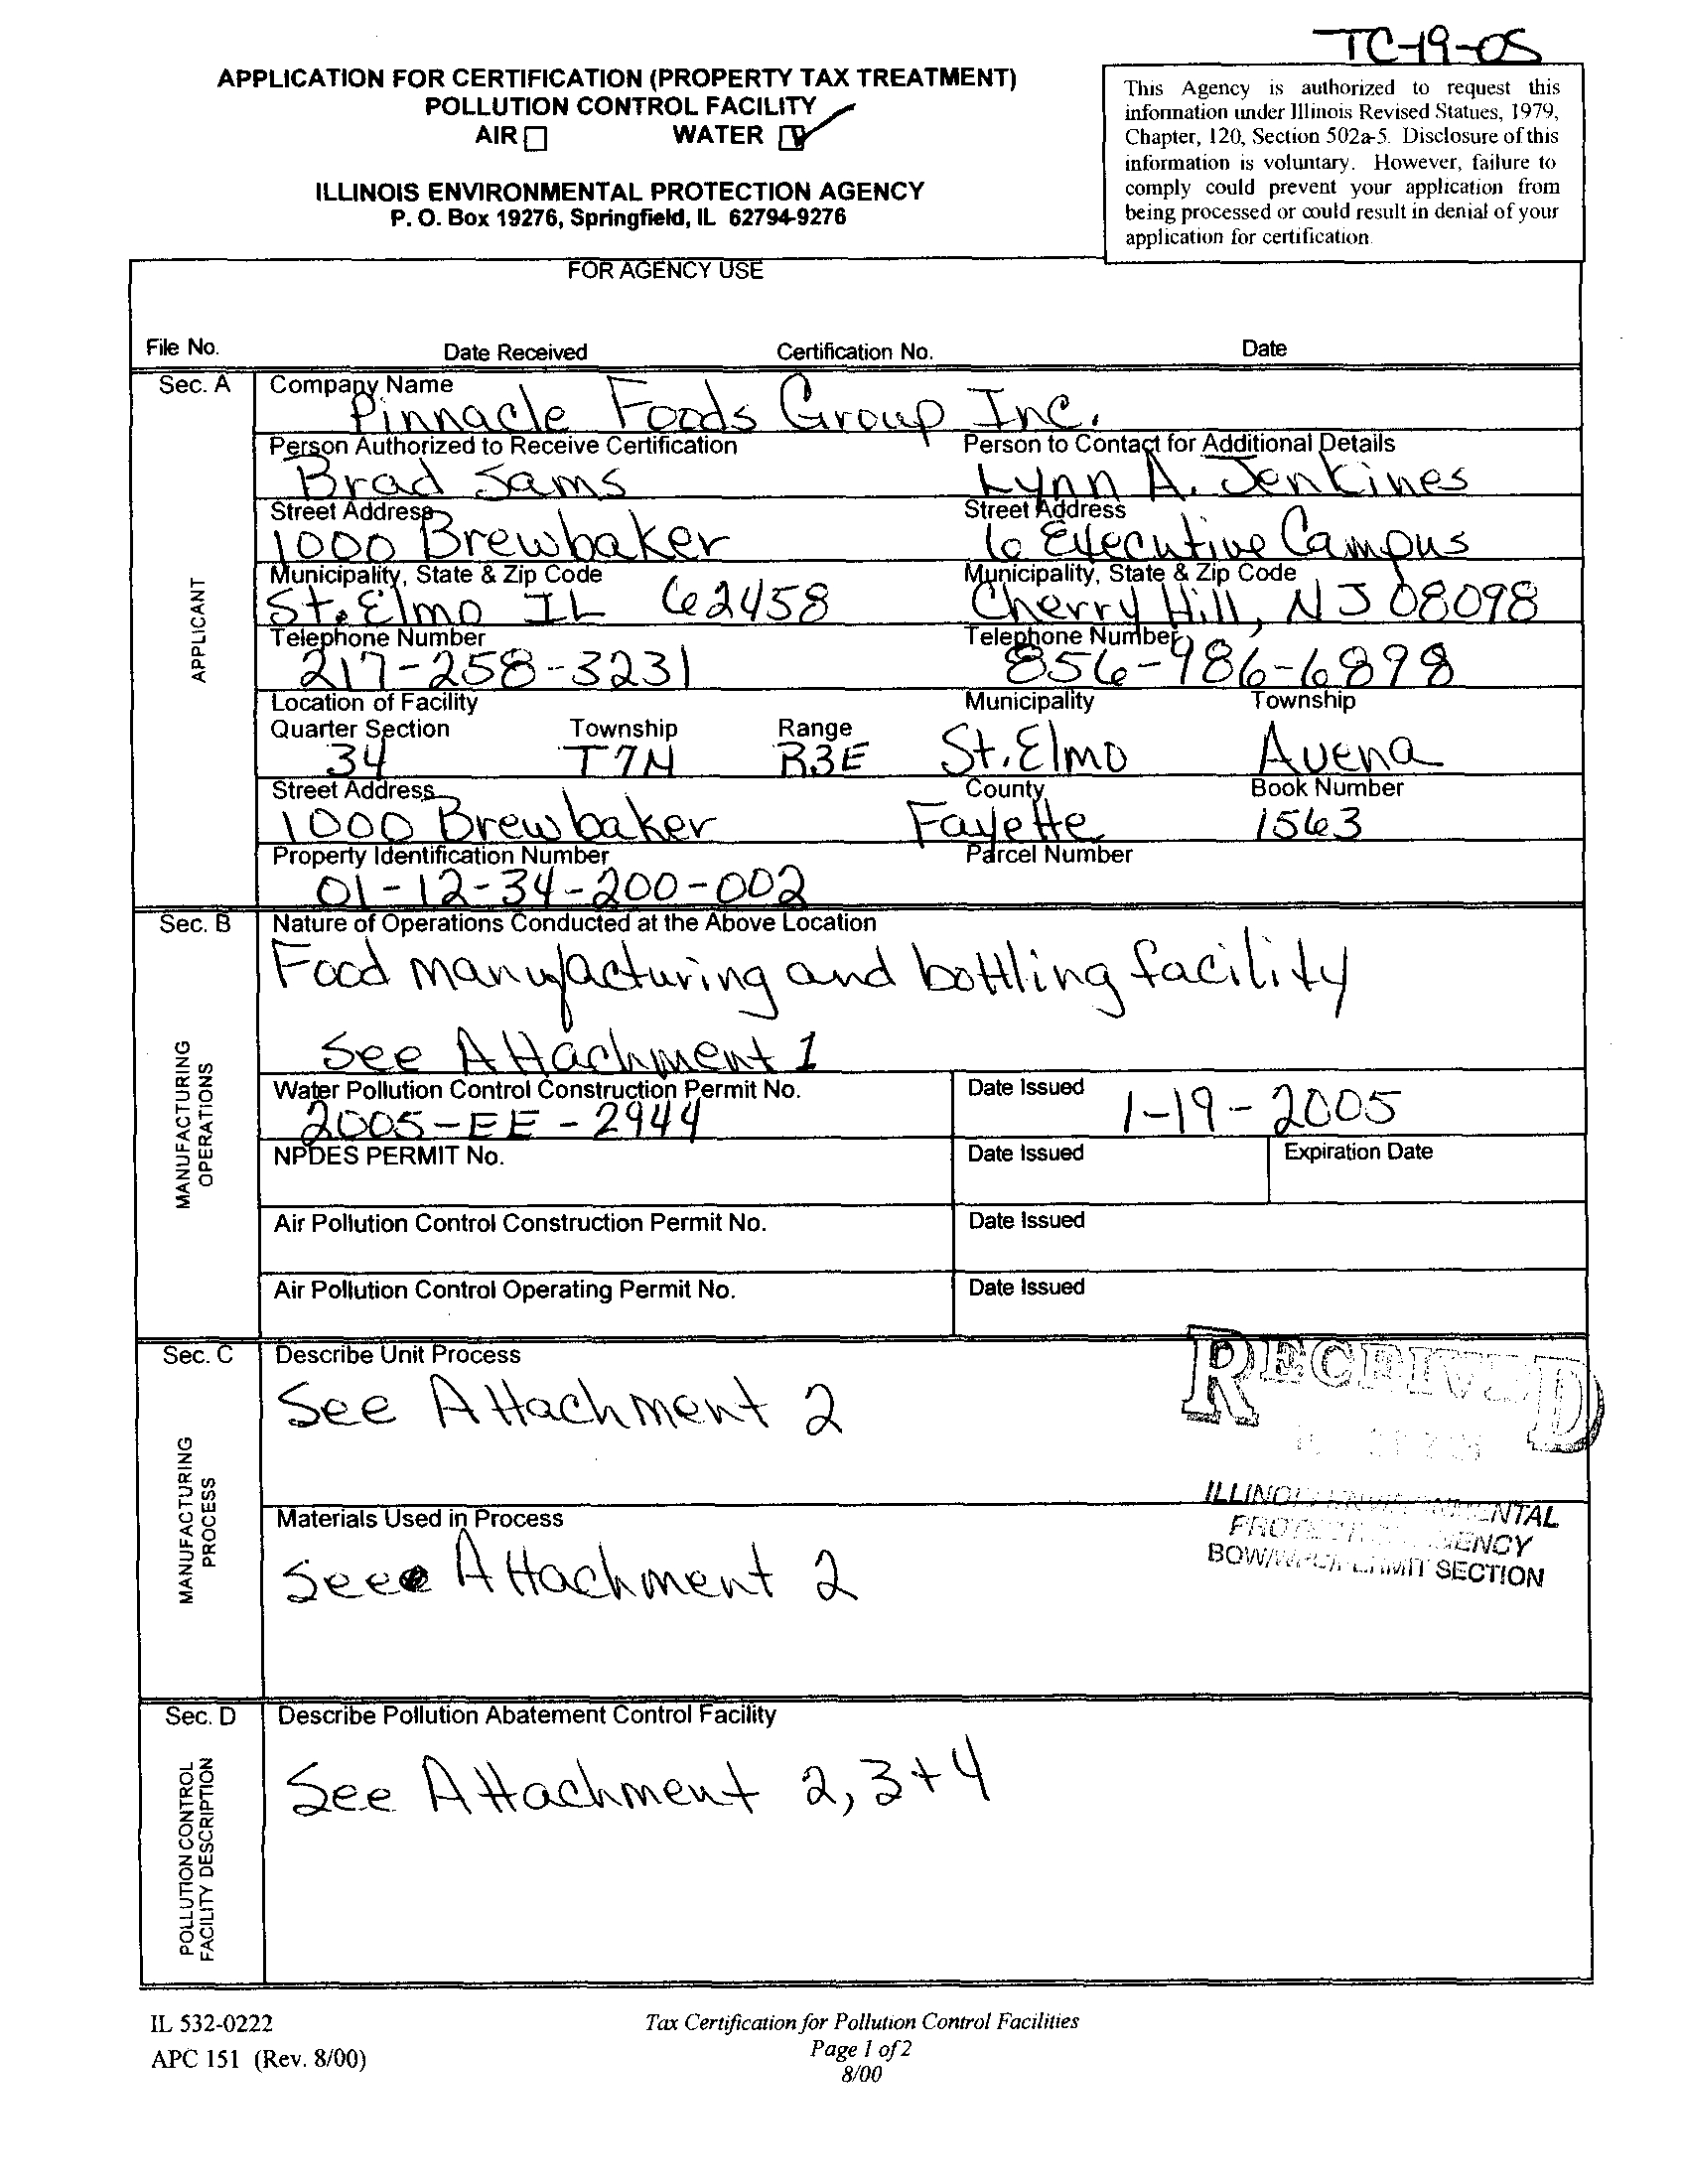 TC-19-05
APPLICATION FOR CERTIFICATION (PROPERTY TAX TREATMENT)
POLLUTION CONTROL FACILITY
AIR WATER
ILLINOIS ENVIRONMENTAL PROTECTION AGENCY
P. O. Box 19276, Springfield, IL 62794-9276
This Agency is authorized to request this
information under Illinois Revised Statues, 1979,
Chapter, 120, Section 502a-5. Disclosure of this
information is voluntary. However, failure to
comply could prevent your application from
being processed or could result in denial of your
application for certification.
FOR AGENCY USE
File No. Date Received Certification No. Date
Sec. A Company Name
Pinnacle Foods Group Inc.
Person Authorized to Receive Certification Person to Contact for Additional Details
Brad Sams Lynn A. Jenkines
Street Address Street Address
1000 Brewbaker 6 Executive Campus
Municipality, State & Zip Code Municipality, State & Zip Code
St. Elmo IL 62458 Cherry Hill, NJ 08098
Telephone Number Telephone Number
217-258-3231 856-986-6898
APPLICANT
Location of Facility Municipality Township
Quarter Section Township Range
34 T7N R3E St. Elmo Avena
Street Address County Book Number
1000 Brewbaker Fayette 1563
Property Identification Number Parcel Number
01-12-34-200-002
Sec. B Nature of Operations Conducted at the Above Location
Food manufacturing and bottling facility
See Attachment 1
MANUFACTURING
OPERATIONS
Water Pollution Control Construction Permit No. Date Issued
2005-EE-2944 1-19-2005
NPDES PERMIT No. Date Issued Expiration Date
Air Pollution Control Construction Permit No. Date Issued
Air Pollution Control Operating Permit No. Date Issued
Sec. C Describe Unit Process
See Attachment 2
RECEIVED
MANUFACTURING
PROCESS
Materials Used in Process
See Attachment 2
ILLINOIS ENVIRONMENTAL
PROTECTION AGENCY
BOW/WPC/PERMIT SECTION
Sec. D Describe Pollution Abatement Control Facility
See Attachment 2, 3 + 4
POLLUTION CONTROL
FACILITY DESCRIPTION
IL 532-0222
APC 151 (Rev. 8/00)
Tax Certification for Pollution Control Facilities
Page 1 of 2
8/00